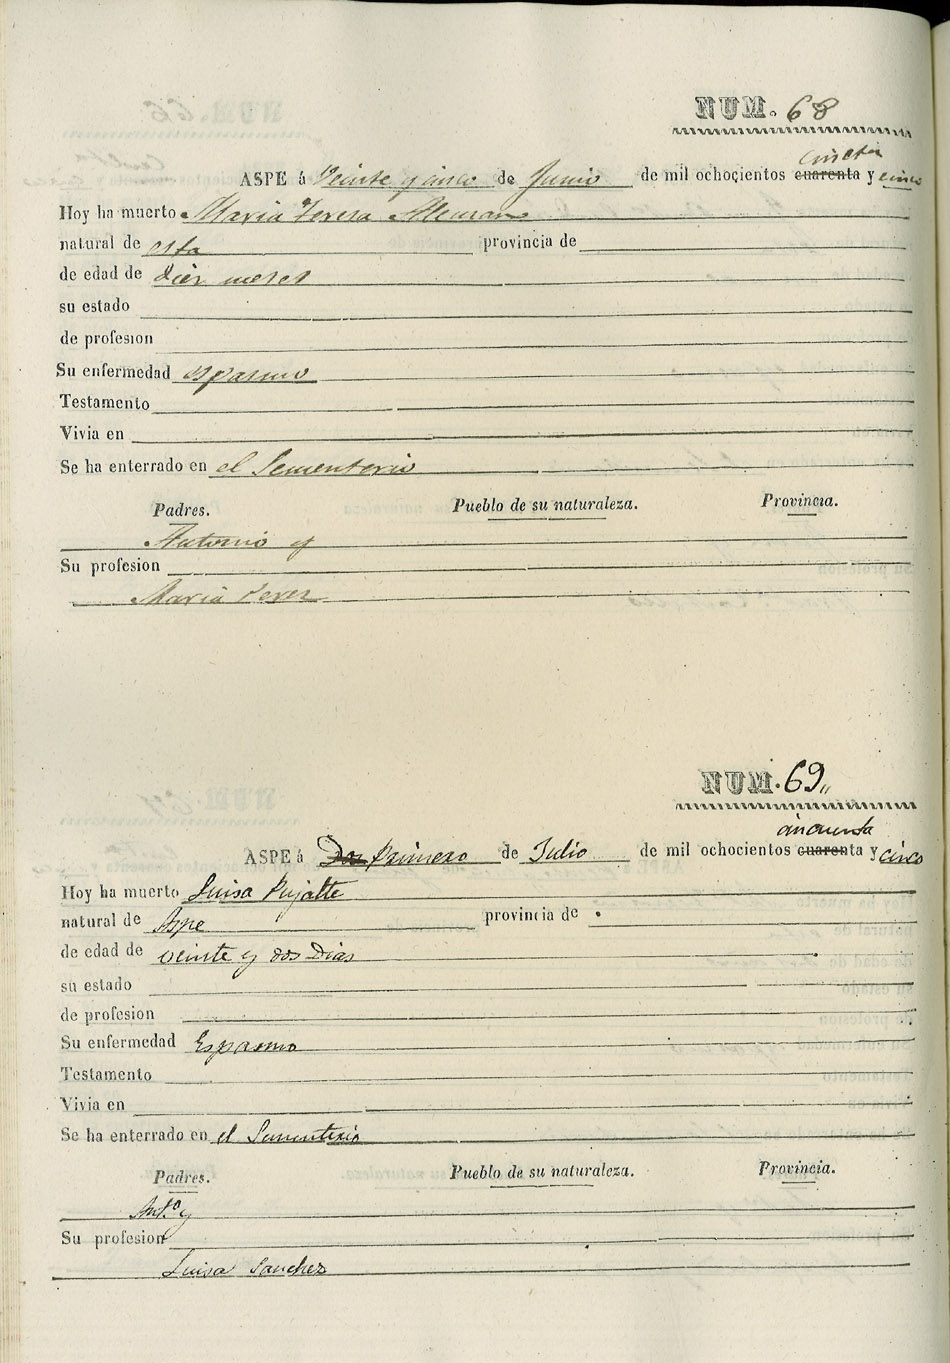 NUM. 68
cincta
ASPE á Veinte y cinco de Junio de mil ochocientos cuarenta y cinco
Hoy ha muerto Maria Teresa Aleman
natural de esta provincia de
de edad de diez meses
su estado
de profesion
Su enfermedad espasmo
Testamento
Vivia en
Se ha enterrado en el Sementerio
Padres. Pueblo de su naturaleza. Provincia.
Antonio y
Su profesion
Maria Perez
NUM. 69
cincuenta
ASPE á Dos Primero de Julio de mil ochocientos cuarenta y cinco
Hoy ha muerto Luisa Pujalte
natural de Aspe provincia de
de edad de veinte y dos Dias
su estado
de profesion
Su enfermedad Espasmo
Testamento
Vivia en
Se ha enterrado en el Sementerio
Padres. Pueblo de su naturaleza. Provincia.
Ant.º y
Su profesion
Luisa Sanchez